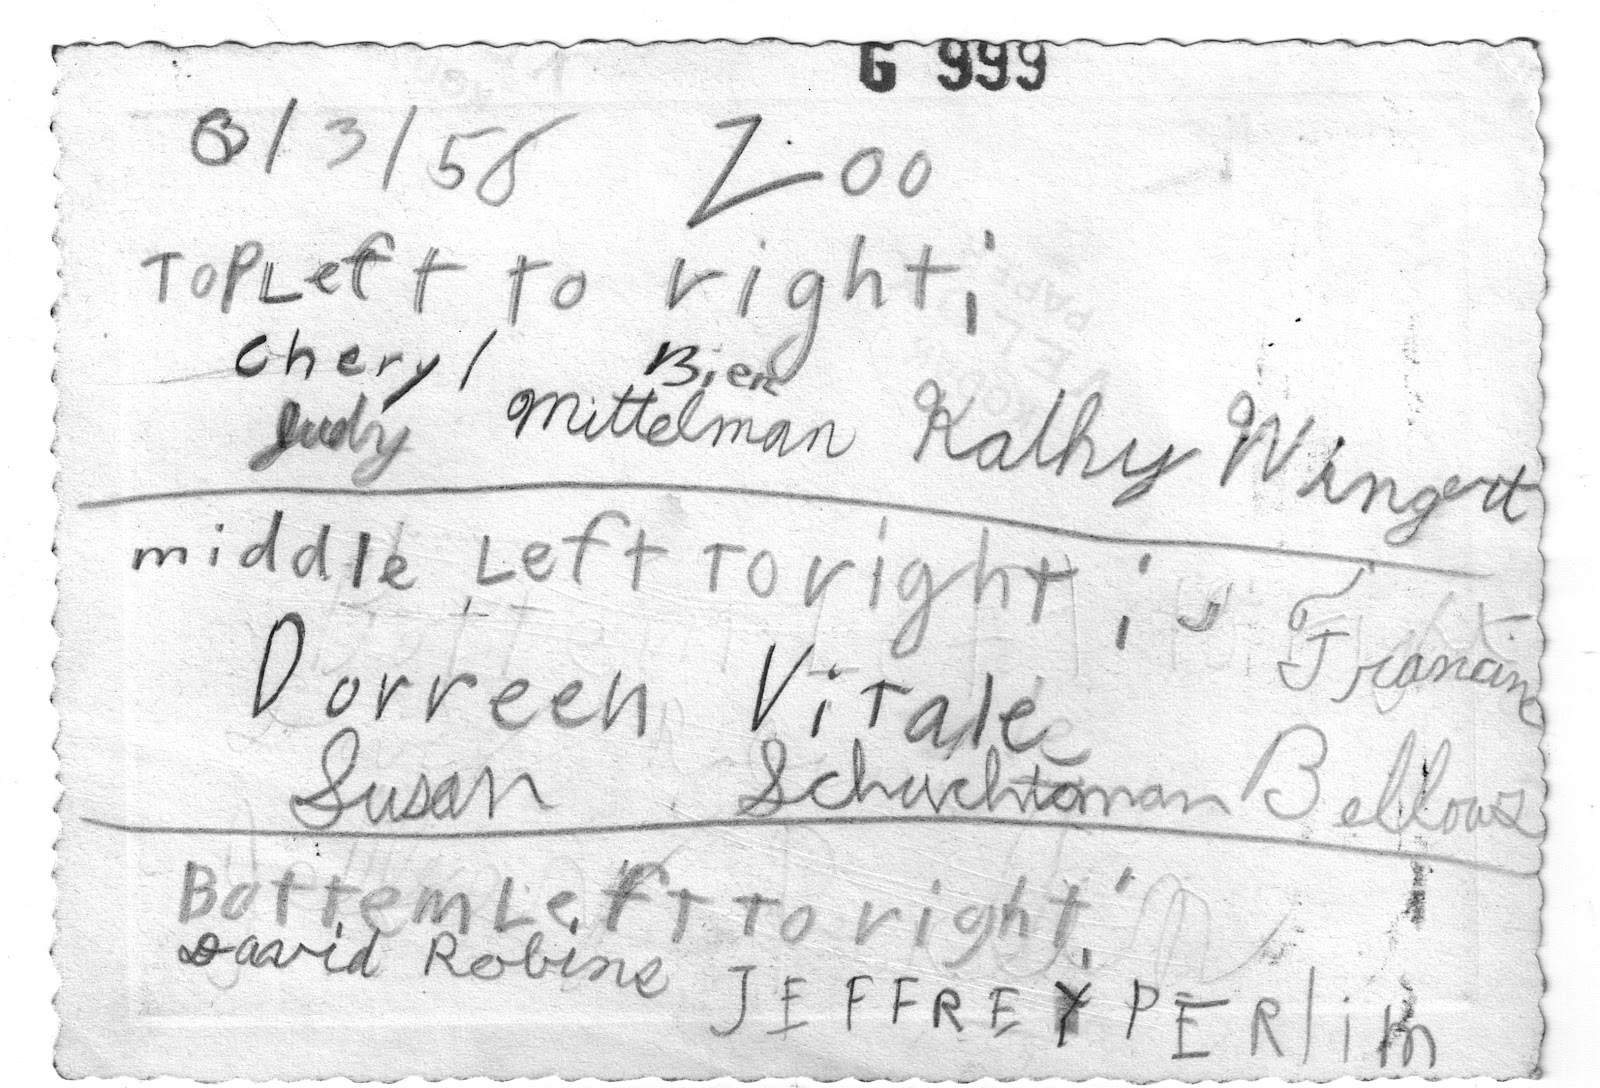 G 999
8/3/58 Zoo
TOP Left To right;
Cheryl Bien
Judy Mittelman Kathy Wingert
middle Left To right;
Francine
Dorreen Vitale
Susan Schuchtaman Bellows
Bottem Left To right;
David Robins
JEFFREY PERlim